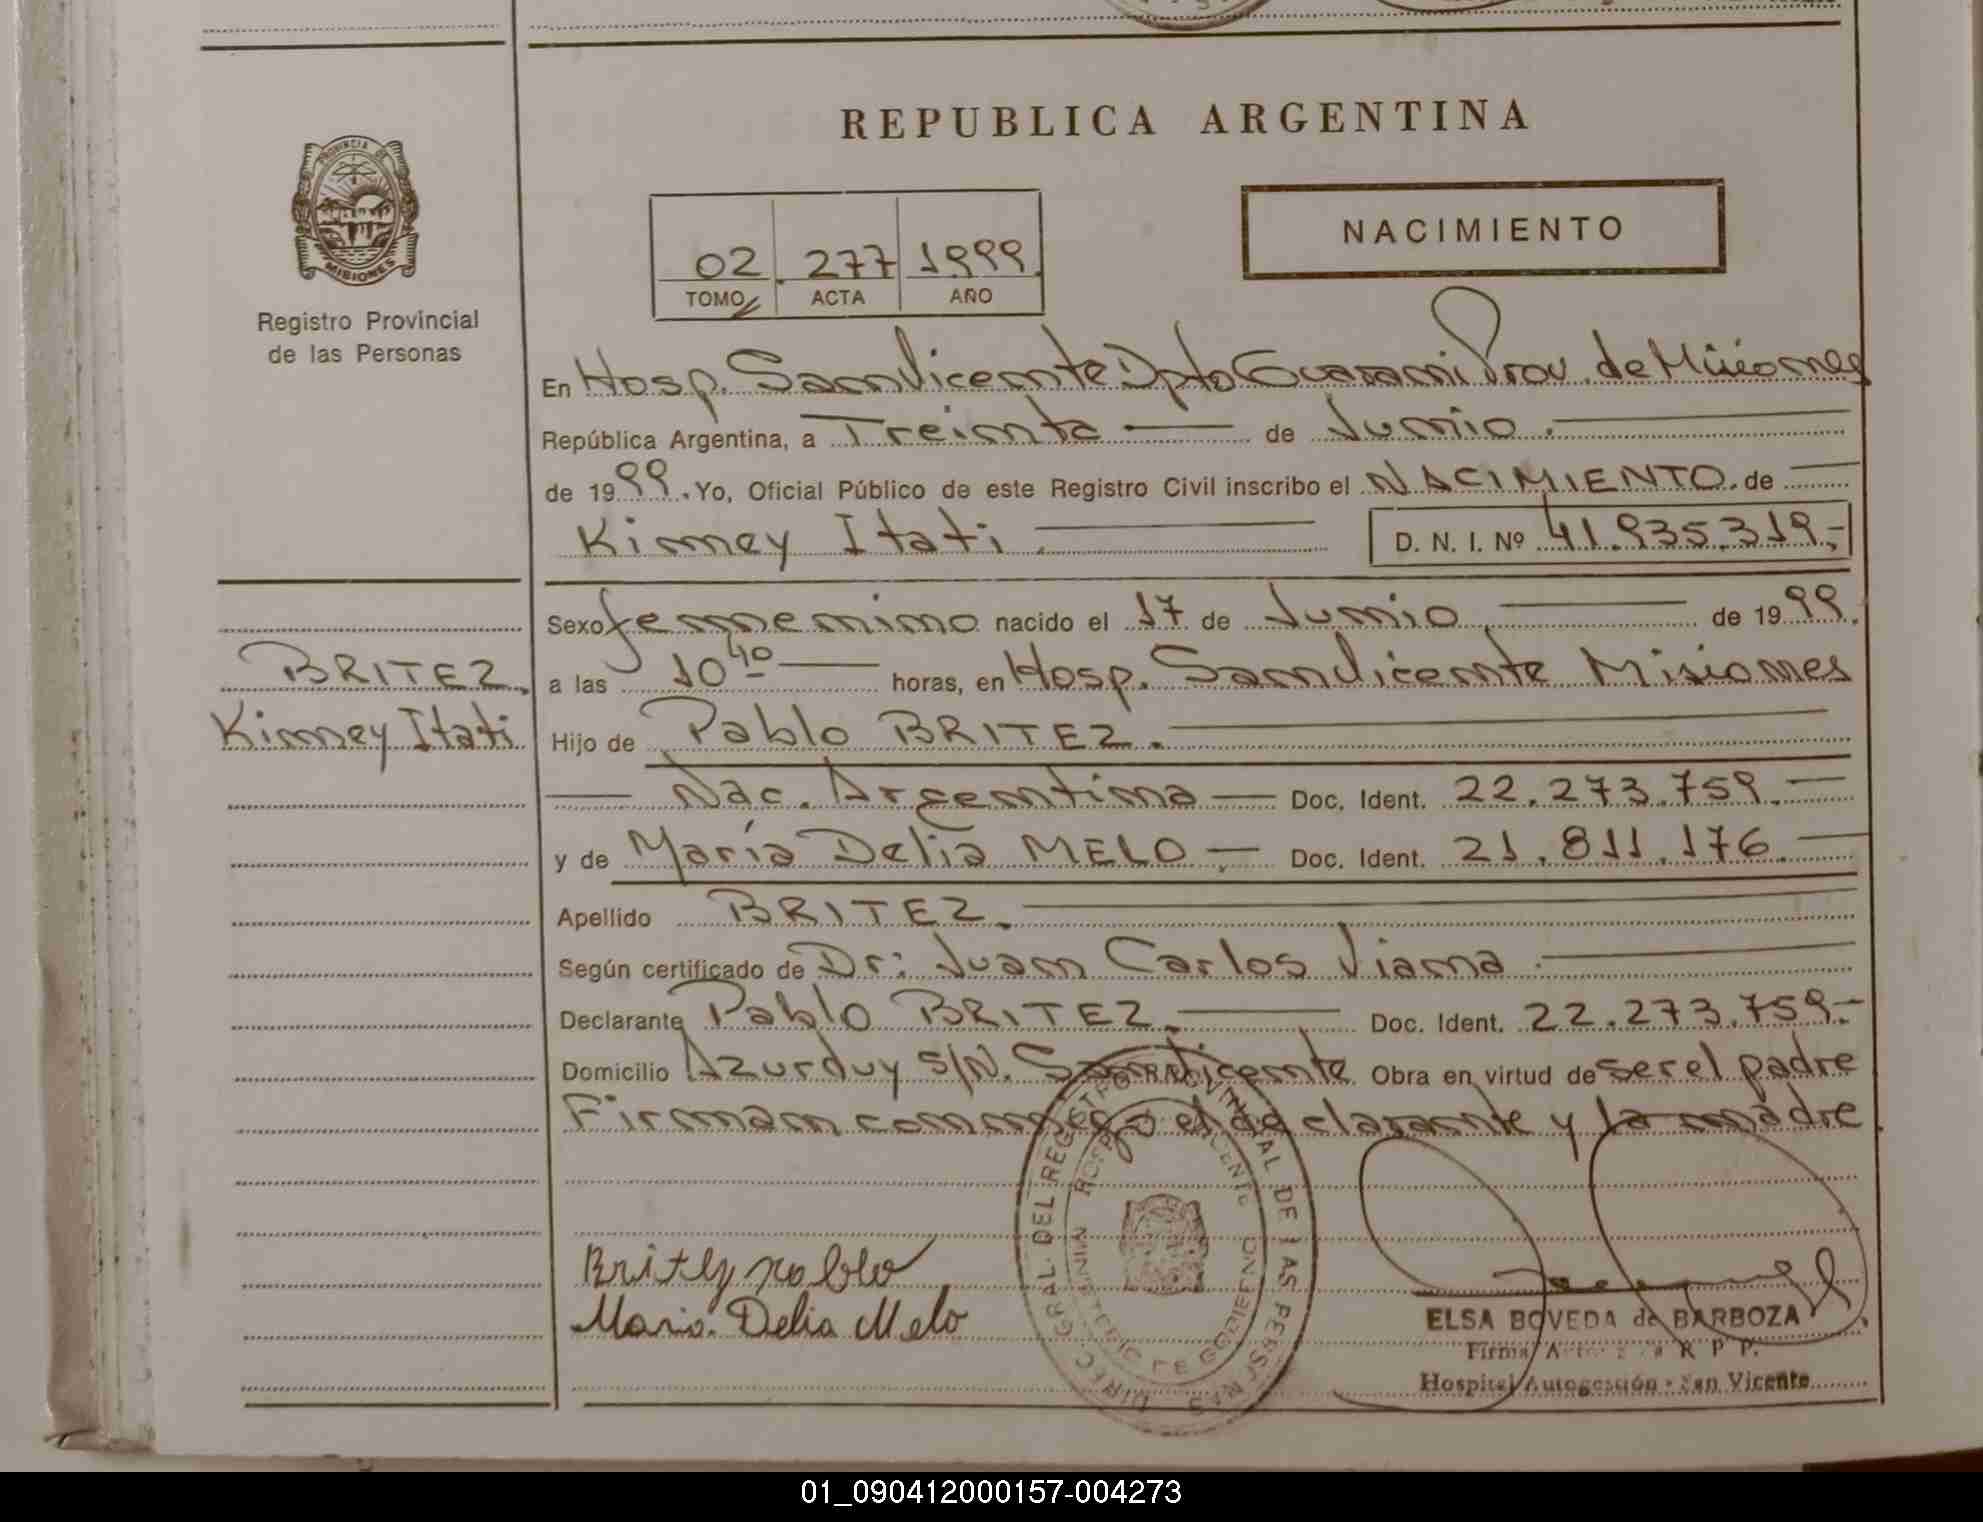 PROVINCIA DE
MISIONES
Registro Provincial
de las Personas
REPUBLICA ARGENTINA
02 277 1999
TOMO ACTA AÑO
NACIMIENTO
En Hosp. San Vicente Dpto Guarani Prov. de Misiones
República Argentina, a Treinta de Junio.
de 1999. Yo, Oficial Público de este Registro Civil inscribo el NACIMIENTO. de
Kinney Itati. D. N. I. Nº 41.935.319.-
Sexo femenino nacido el 17 de Junio de 1999.
BRITEZ.
a las 10 40 horas, en Hosp. San Vicente Misiones
Kinney Itati
Hijo de Pablo BRITEZ.
Nac. Argentina Doc. Ident. 22.273.759.
y de María Delia MELO Doc. Ident. 21.811.176.
Apellido BRITEZ.
Según certificado de Dr: Juan Carlos Viana.
Declarante Pablo BRITEZ. Doc. Ident. 22.273.759.-
Domicilio Azurduy S/N. San Vicente Obra en virtud de ser el padre
Firman conmigo el declarante y la madre.
DIREC. GRAL. DEL REGISTRO PROVINCIAL DE LAS PERSONAS
MINISTERIO DE GOBIERNO
Britez Pablo
Maria Delia Melo
ELSA BOVEDA de BARBOZA
Firma R P P.
Hospital Autogestión - San Vicente
01_090412000157-004273